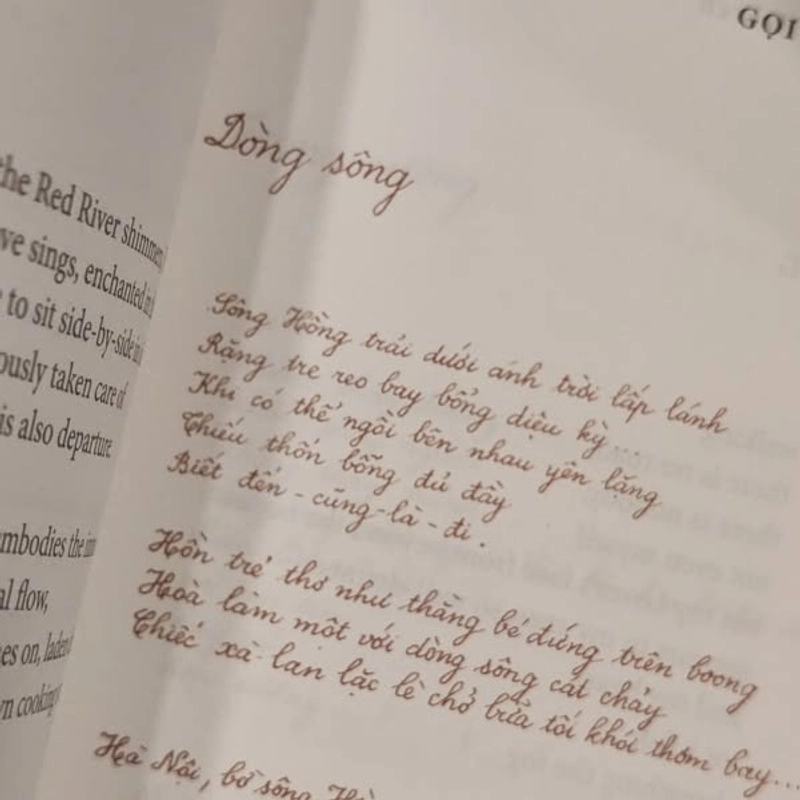 the Red River shimmers
sings, enchanted
to sit side-by-side
taken care of
is also departure
the
flow,
on,
cooking
GỌI
Dòng sông
Sông Hồng trải dưới ánh trời lấp lánh
Rặng tre reo bay bổng diệu kỳ...
Khi có thể ngồi bên nhau yên lặng
Thiếu thốn bỗng đủ đầy
Biết đến - cũng - là - đi.
Hồn trẻ thơ như thằng bé đứng trên boong
Hoà làm một với dòng sông cát chảy
Chiếc xà-lan lặc lè chở bữa tối khói thơm bay...
Hà Nội, bờ sông